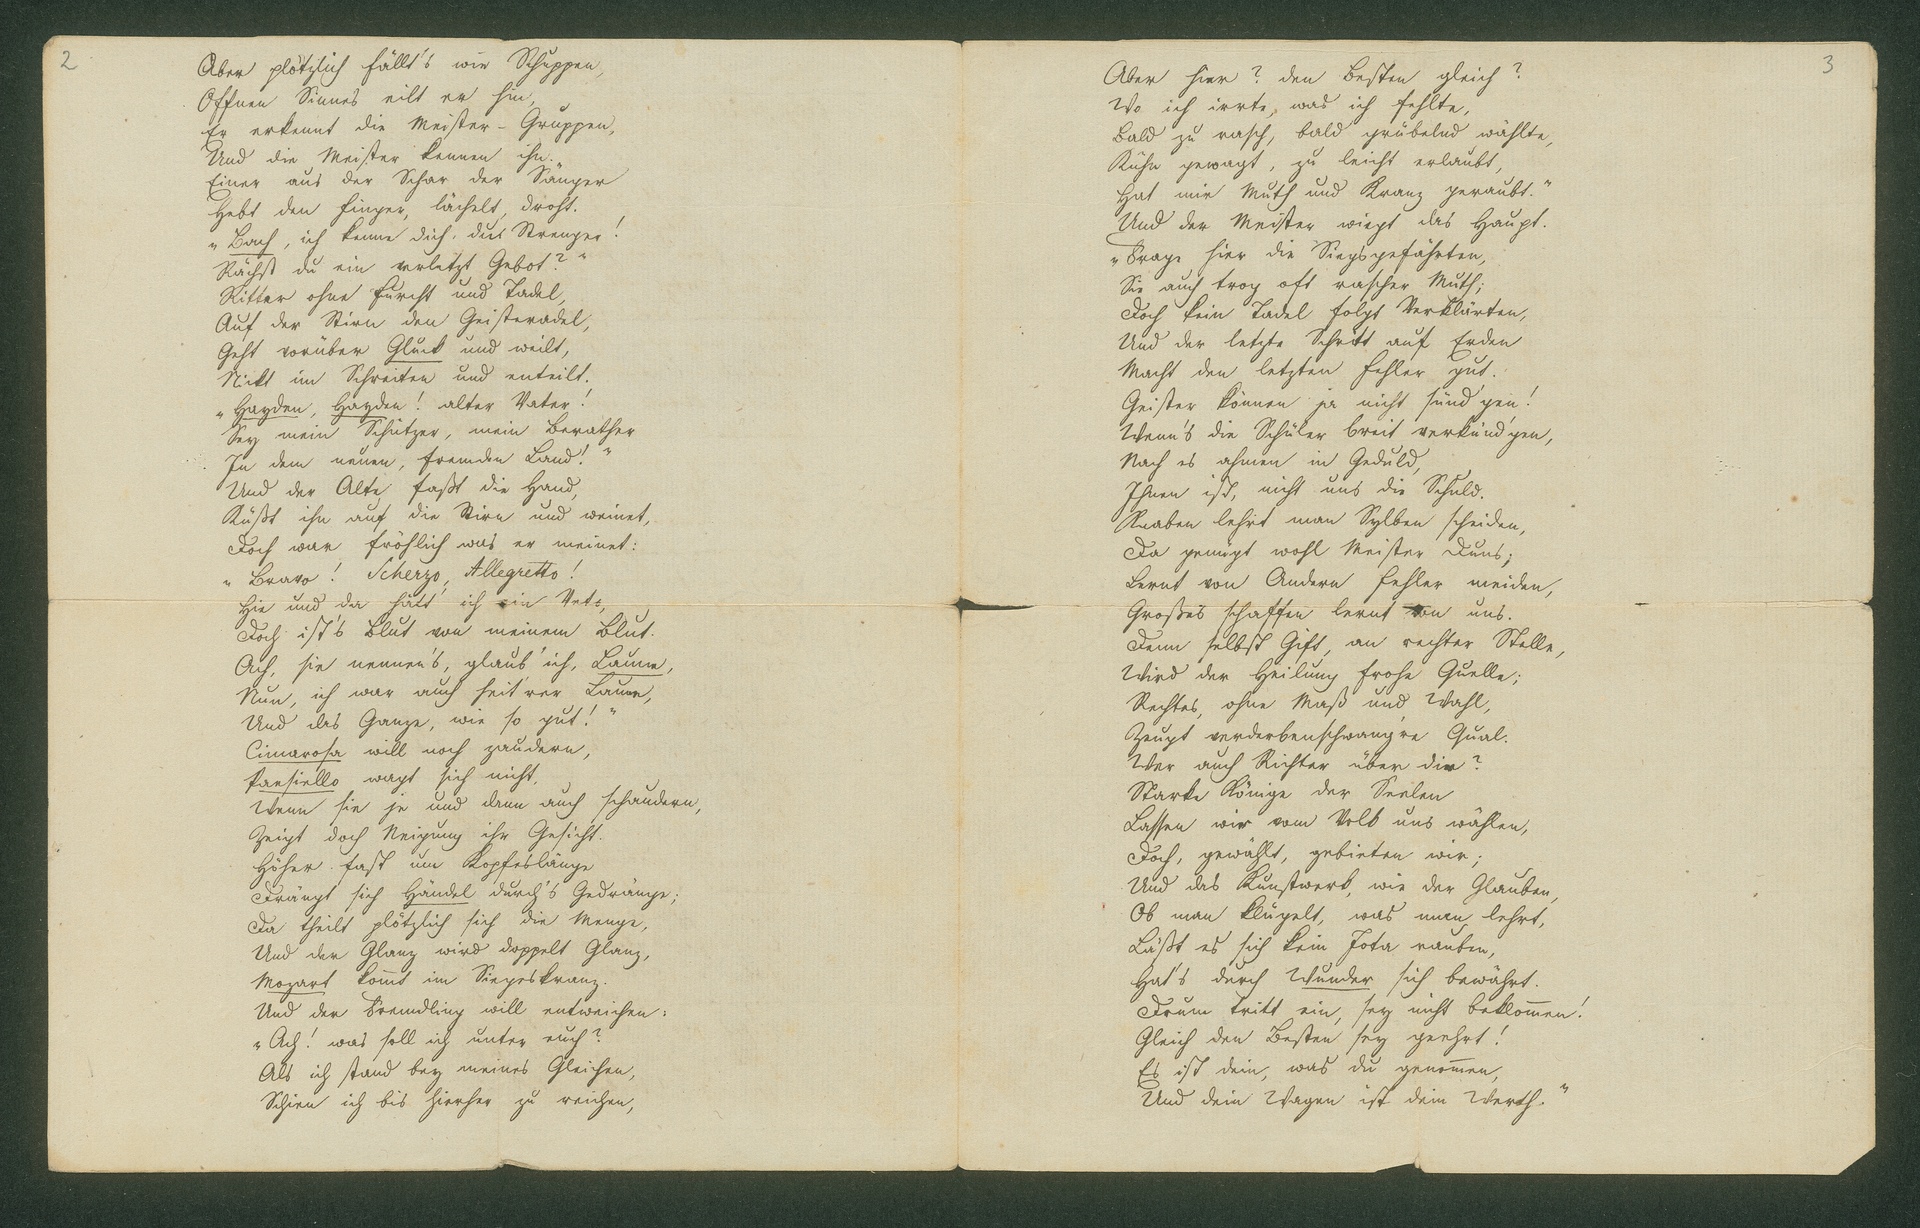 2
Aber plötzlich fällt's wie Schuppen,
Offnen Sinnes eilt er hin,
Er erkennt die Meister-Gruppen,
Und die Meister kennen ihn.
Einer aus der Schar der Sänger
Hebt den Finger, lächelt, droht.
„Bach, ich kenne dich, du Strenger!
Rächst du ein verletzt Gebot?"
Ritter ohne Furcht und Tadel,
Auf der Stirn den Geisteradel,
Geht vorüber Gluck und weilt,
Nickt im Schreiten und enteilt.
„Hayden, Hayden! alter Vater!
Sey mein Schützer, mein Berather
In dem neuen, fremden Land!"
Und der Alte faßt die Hand,
Küßt ihn auf die Stirn und weinet,
Doch war fröhlich was er meinet:
„Bravo! Scherzo, Allegretto!
Hie und da hätt' ich ein Veto,
Doch ist's Blut von meinem Blut.
Ach, sie nennen's, glaub' ich, Laune,
Nun, ich war auch heit'rer Laune,
Und das Ganze, wie so gut!"
Cimarosa will noch zaudern,
Paesiello wagt sich nicht,
Wenn sie je und dann auch schaudern,
Zeigt doch Neigung ihr Gesicht.
Höher fast um Kopfeslänge
Drängt sich Händel durch's Gedränge;
Da theilt plötzlich sich die Menge,
Und der Glanz wird doppelt Glanz,
Mozart kom̅t im Siegeskranz.
Und der Fremdling will entweichen:
„Ach! was soll ich unter euch?
Als ich stand bey meines Gleichen,
Schien ich bis hierher zu reichen,
3
Aber hier? den Besten gleich?
Wo ich irrte, was ich fehlte,
Bald zu rasch, bald grübelnd wählte,
Kühn gewagt, zu leicht erlaubt,
Hat mir Muth und Kranz geraubt."
Und der Meister wiegt das Haupt.
„Frage hier die Siegsgefährten,
Sie auch trog oft rascher Muth;
Doch kein Tadel folgt Verklärten,
Und der letzte Schritt auf Erden
Macht den letzten Fehler gut.
Geister können ja nicht sünd'gen!
Wenn's die Schüler breit verkünd'gen,
Nach es ahmen in Geduld,
Ihnen ist, nicht uns die Schuld.
Knaben lehrt man Sylben scheiden,
Da genügt wohl Meister Duns;
Lernt von Andern Fehler meiden,
Großes schaffen lernt von uns.
Denn selbst Gift, an rechter Stelle,
Wird der Heilung frohe Quelle;
Rechtes, ohne Maß und Wahl,
Zeugt verderbenschwangre Qual.
Wer auch Richter über dir?
Starke Könige der Seelen
Lassen wir vom Volk uns wählen,
Doch, gewählt, gebieten wir;
Und das Kunstwerk, wie der Glauben,
Ob man klügelt, was man lehrt,
Läßt es sich kein Jota rauben,
Hat's durch Wunder sich bewährt.
Drum tritt ein, sey nicht beklom̅en!
Gleich den Besten sey geehrt!
Es ist dein, was du genom̅en,
Und dein Wagen ist dein Werth."